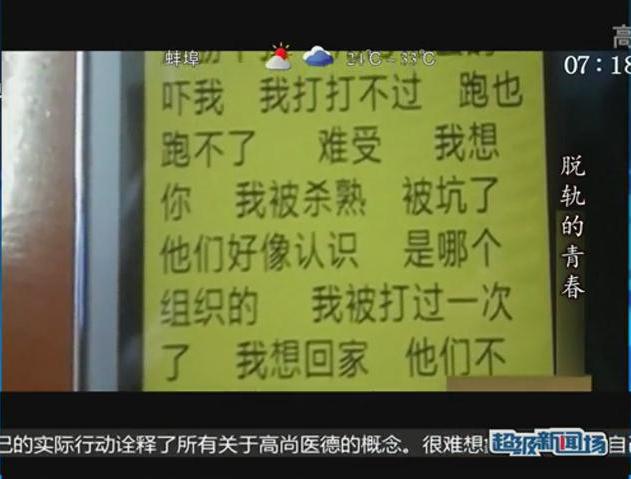 高
蚌埠 24℃-33℃
07:18
吓我 我打打不过 跑也
跑不了 难受 我想
你 我被杀熟 被坑了
他们好像认识 是哪个
组织的 我被打过一次
了 我想回家 他们不
脱轨的青春
已的实际行动诠释了所有关于高尚医德的概念。很难想
超级新闻场